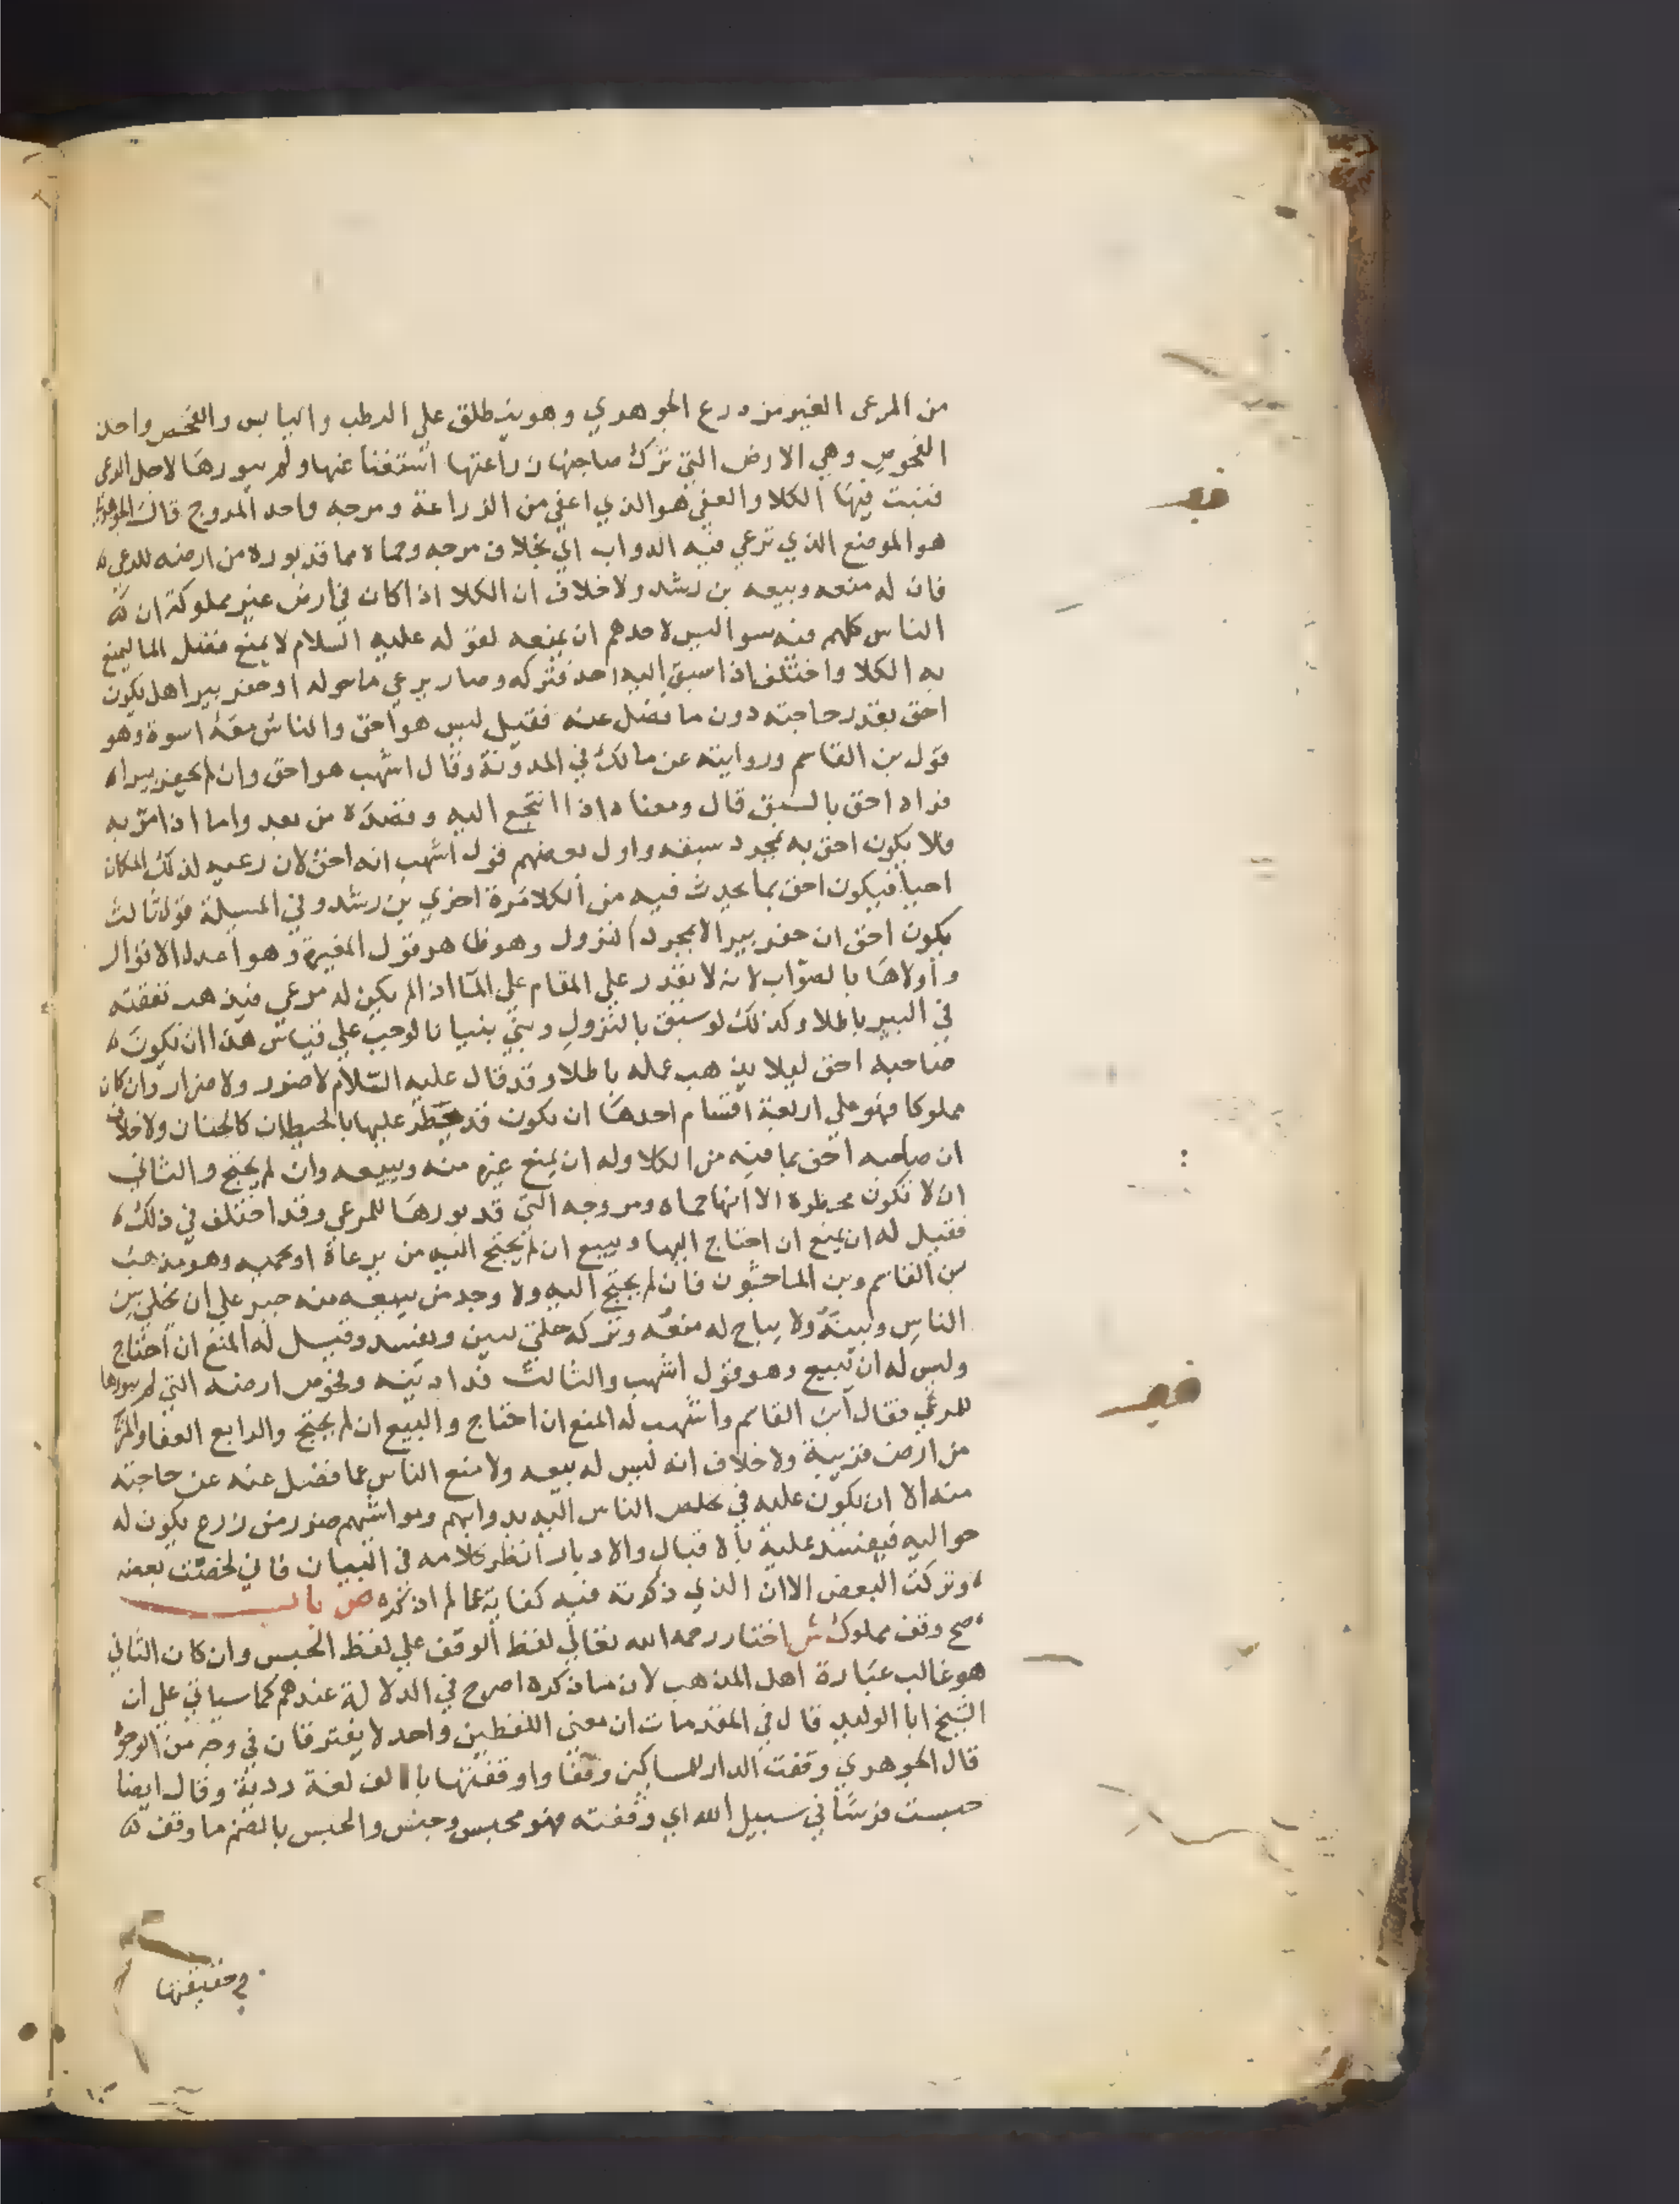 من المرعى الغير من درع الجوهري وهو ينطلق على الرطب واليابس والفحص واحد
الفحوص وهي الارض التي ترك صاحبها زراعتها استغنا عنها ولم يبورها لاجل الرعي
فنبت فيها الكلا والعفى هو الذي اعفي من الزراعة ومرجه واحد المروج قال الجوهري
هو الموضع الذي ترعي فيه الدواب اي بخلاف مرجه وحماه مما قد بوره من ارضه للرعي
فان له منعه وبيعه بن رشد ولا خلاف ان الكلا اذا كان في ارض غير مملوكة ان
الناس كلهم فيه سوا ليس لاحدهم ان يمنعه لقوله عليه السلام لا يمنع فضل الما ليمنع
به الكلا واختلف اذا سبق اليه احد فتركه وصار يرعي ما حوله او حفر بيرا هل يكون
احق بقدر حاجته دون ما فضل عنه فقيل ليس هو احق والناس معه اسوة وهو
قول بن القاسم وروايته عن مالك في المدونة وقال اشهب هو احق وان لم يحفر بيرا
فراه احق بالسبق قال ومعناه اذا انتجع اليه وقصده من بعد واما اذا مر به
فلا يكون احق به بمجرد سبقه واول بعضهم قول اشهب انه احق لان رعيه لذلك المكان
احيا فيكون احق بما يحدث فيه من الكلا مرة اخري بن رشد وفي المسيلة قول ثالث
يكون احق ان حفر بيرا لا بمجرد النزول وهو ظاهر قول المغيرة وهو اعدل الاقوال
واولاها بالصواب لانه لا يقدر على المقام على الما اذا لم يكن له مرعي فيذهب نفقته
في البير باطلا وكذلك لو سبق بالنزول وبني بنيانا لوجب علي قياس هذا ان يكون
صاحبه احق ليلا يذهب عمله باطلا وقد قال عليه السلام لا ضرر ولا ضرار وان كان
مملوكا فهو علي اربعة اقسام احدها ان يكون قد حظر عليها بالحيطان كالجنان ولا خلاف
ان صاحبه احق بما فيه من الكلا وله ان يمنع غيره منه ويبيعه وان لم يحتج والثاني
ان لا تكون محظرة الا انها حماه ومروجه التي قد بورها للمرعي وقد اختلف في ذلك
فقيل له ان يمنع ان احتاج اليها ويبيع ان لم يحتج اليه من يرعاه او يحميه وهو مذهب
بن القاسم وبن الماجشون فان لم يحتج اليه ولا وجد من يبيعه منه جبر علي ان يخلي بين
الناس وبينه ولا يباح له منعه وتركه حتي ييبس ويفسد وقيل له المنع ان احتاج
وليس له ان يبيع وهو قول اشهب والثالث فدادينه وفحوص ارضه التي لم يبورها
للمرعي فقال ابن القاسم واشهب له المنع ان احتاج والبيع ان لم يحتج والرابع العفا والمرج
من ارض قريبة ولا خلاف انه ليس له بيعه ولا منع الناس عما فضل عنه عن حاجته
منه الا ان يكون عليه في تخلص الناس اليه بدوابهم ومواشيهم ضرر من زرع يكون له
حواليه فيفسد عليه بالاقبال والادبار انظر كلامه في البيان فاني لخصت بعضه
وتركت البعض الا ان الذي ذكرته فيه كفاية عما لم اذكره ص باب
صح وقف مملوك ش اختار رحمه الله تعالي لفظ الوقف علي لفظ الحبس وان كان الثاني
هو غالب عبارة اهل المذهب لان ما ذكره اصرح في الدلالة عندهم كما سياتي علي ان
الشيخ ابا الوليد قال في المقدمات ان معني اللفظين واحد لا يفترقان في وجه من الوجوه
قال الجوهري وقفت الدار للمساكين وقفا واوقفتها بالالف لغة رديئة وقال ايضا
حبست فرسا في سبيل الله اي وقفته فهو محبس وحبس والحبس بالضم ما وقف
في حقيقتها